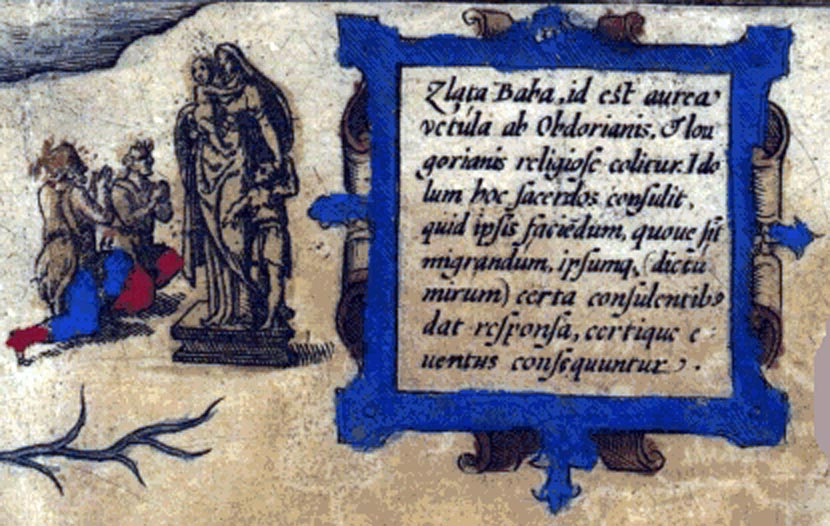 Zlata Baba, id est aurea
vetula ab Obdorianis, & Iou
gorianis religiose colitur. Ido
lum hoc sacerdos consulit,
quid ipsis faciēdum, quoue sit
migrandum, ipsumq, (dictu
mirum) certa consulentibꝰ
dat responsa, certique e-
uentus consequuntur.